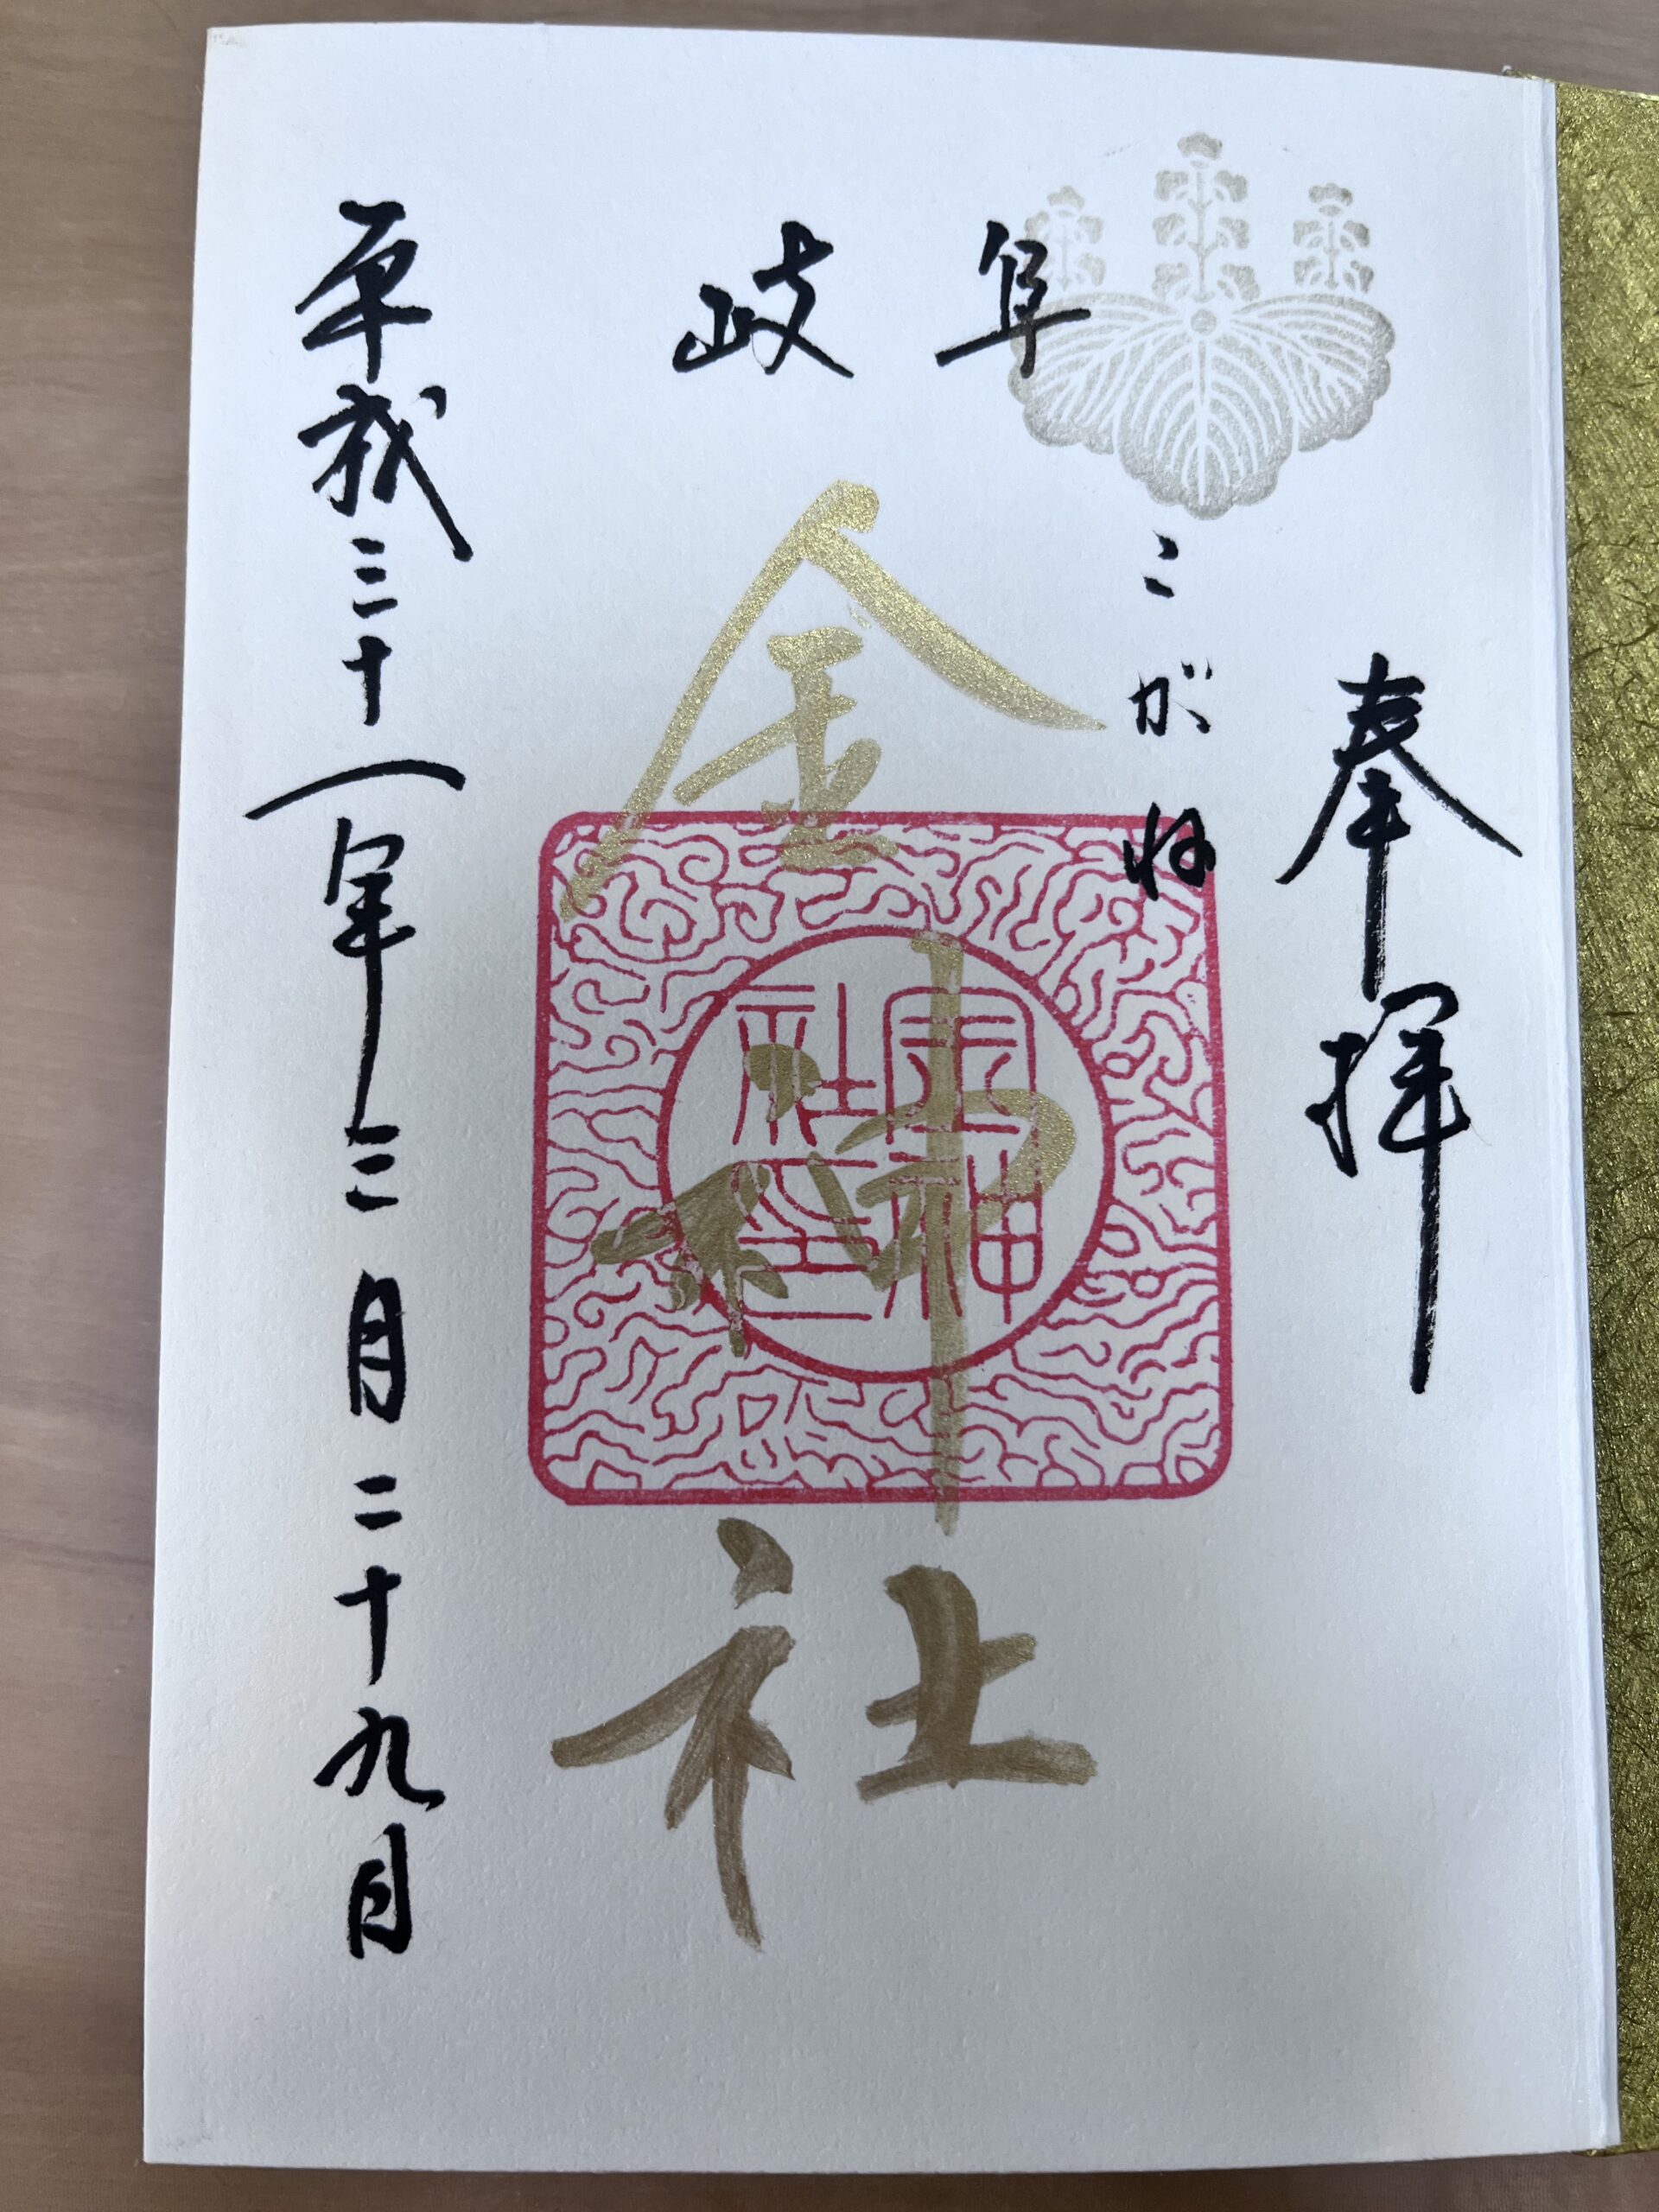 奉拝
こがね
岐阜
金神社
金神社印
平成三十一年三月二十九日